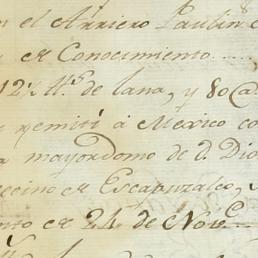 el Arriero Paulin
en Conocimiento.....
12½ @.s de lana, y 80 @
remití á Mexico co
a mayordomo de d. Dio
vecino en Escapuzalco,
nto en 24 de Nov.e